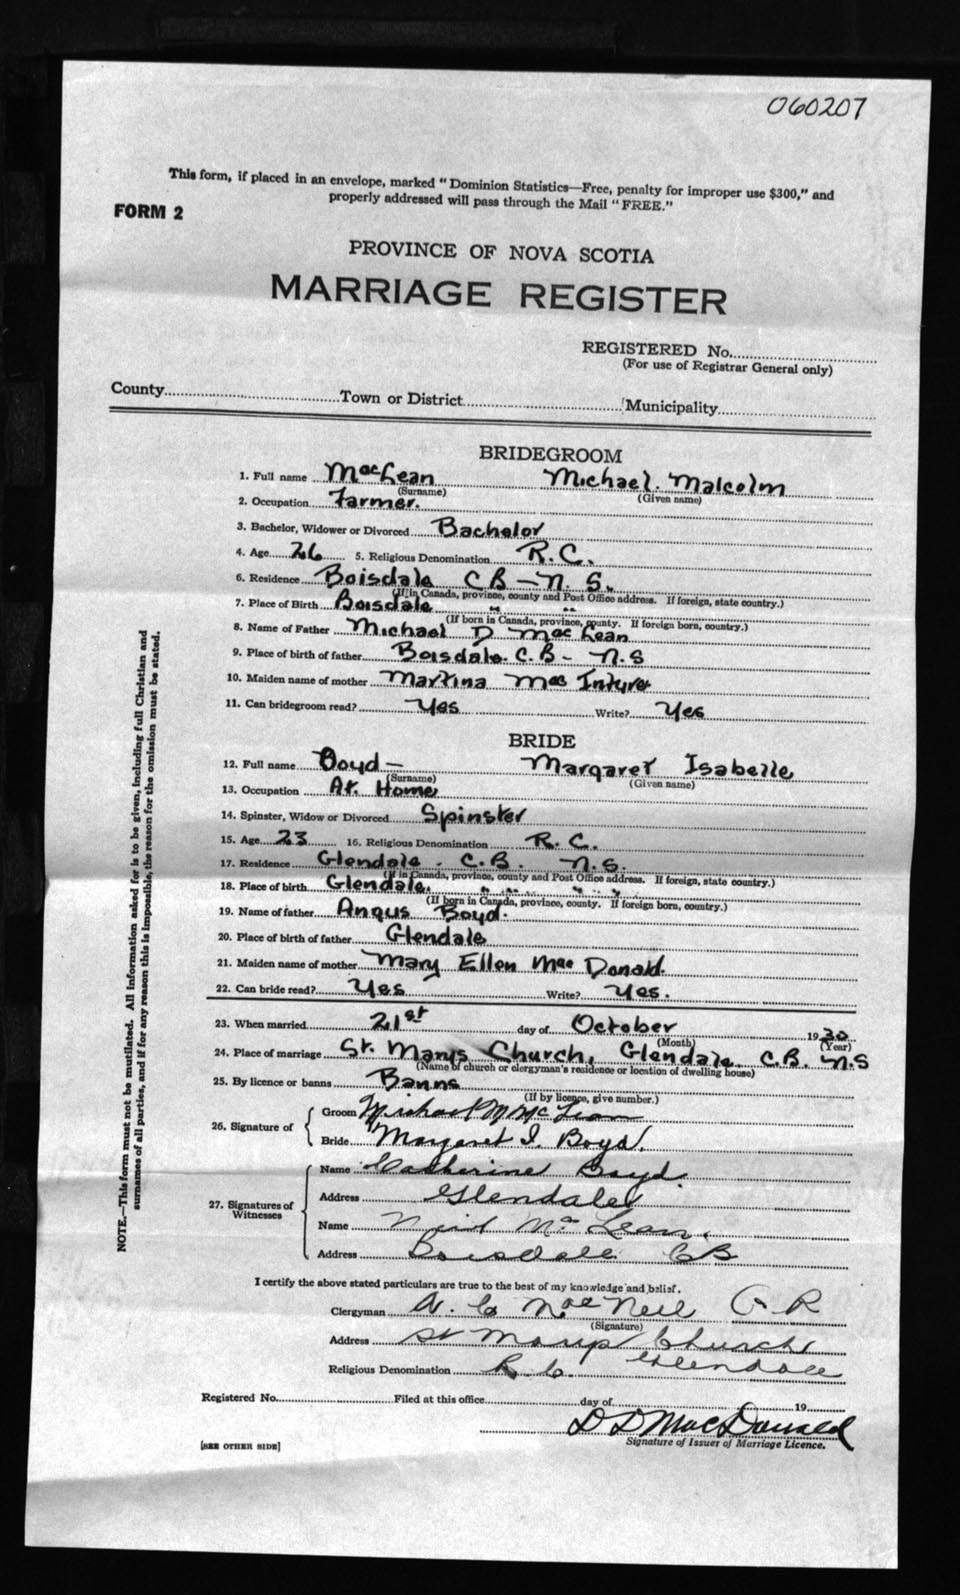 060207
This form, if placed in an envelope, marked "Dominion Statistics—Free, penalty for improper use $300," and
properly addressed will pass through the Mail "FREE."
FORM 2
PROVINCE OF NOVA SCOTIA
MARRIAGE REGISTER
REGISTERED No.
(For use of Registrar General only)
County Town or District Municipality
BRIDEGROOM
1. Full name MacLean Michael. Malcolm
(Surname) (Given name)
2. Occupation Farmer.
3. Bachelor, Widower or Divorced Bachelor
4. Age 26 5. Religious Denomination R.C.
6. Residence Boisdale C B — N. S.
(If in Canada, province, county and Post Office address. If foreign, state country.)
7. Place of Birth Boisdale " "
(If born in Canada, province, county. If foreign born, country.)
8. Name of Father Michael D MacLean
9. Place of birth of father Boisdale. C.B - N.S
10. Maiden name of mother Martina Mac Intyre
11. Can bridegroom read? Yes Write? Yes
BRIDE
12. Full name Boyd — Margaret Isabelle
(Surname) (Given name)
13. Occupation At Home
14. Spinster, Widow or Divorced Spinster
15. Age 23 16. Religious Denomination R. C.
17. Residence Glendale . C.B. N.S.
(If in Canada, province, county and Post Office address. If foreign, state country.)
18. Place of birth Glendale. " " " "
(If born in Canada, province, county. If foreign born, country.)
19. Name of father Angus Boyd.
20. Place of birth of father Glendale
21. Maiden name of mother Mary Ellen Mac Donald.
22. Can bride read? Yes Write? Yes.
23. When married 21st day of October 1930
(Month) (Year)
24. Place of marriage St. Marys Church, Glendale C.B. N.S
(Name of church or clergyman's residence or location of dwelling house)
25. By licence or banns Banns
(If by licence, give number.)
26. Signature of
Groom Michael M McLean
Bride Margaret I. Boyd.
27. Signatures of Witnesses
Name Catherine Boyd.
Address Glendale
Name Neil McLean.
Address Boisdale CB
I certify the above stated particulars are true to the best of my knowledge and belief.
Clergyman A. C MacNeil P. R
(Signature)
Address St Marys Church
Glendale
Religious Denomination R. C.
Registered No. Filed at this office day of 19
D D MacDonald
Signature of Issuer of Marriage Licence.
[SEE OTHER SIDE]
NOTE.—This form must not be mutilated. All information asked for is to be given, including full Christian and
surnames of all parties, and if for any reason this is impossible, the reason for the omission must be stated.